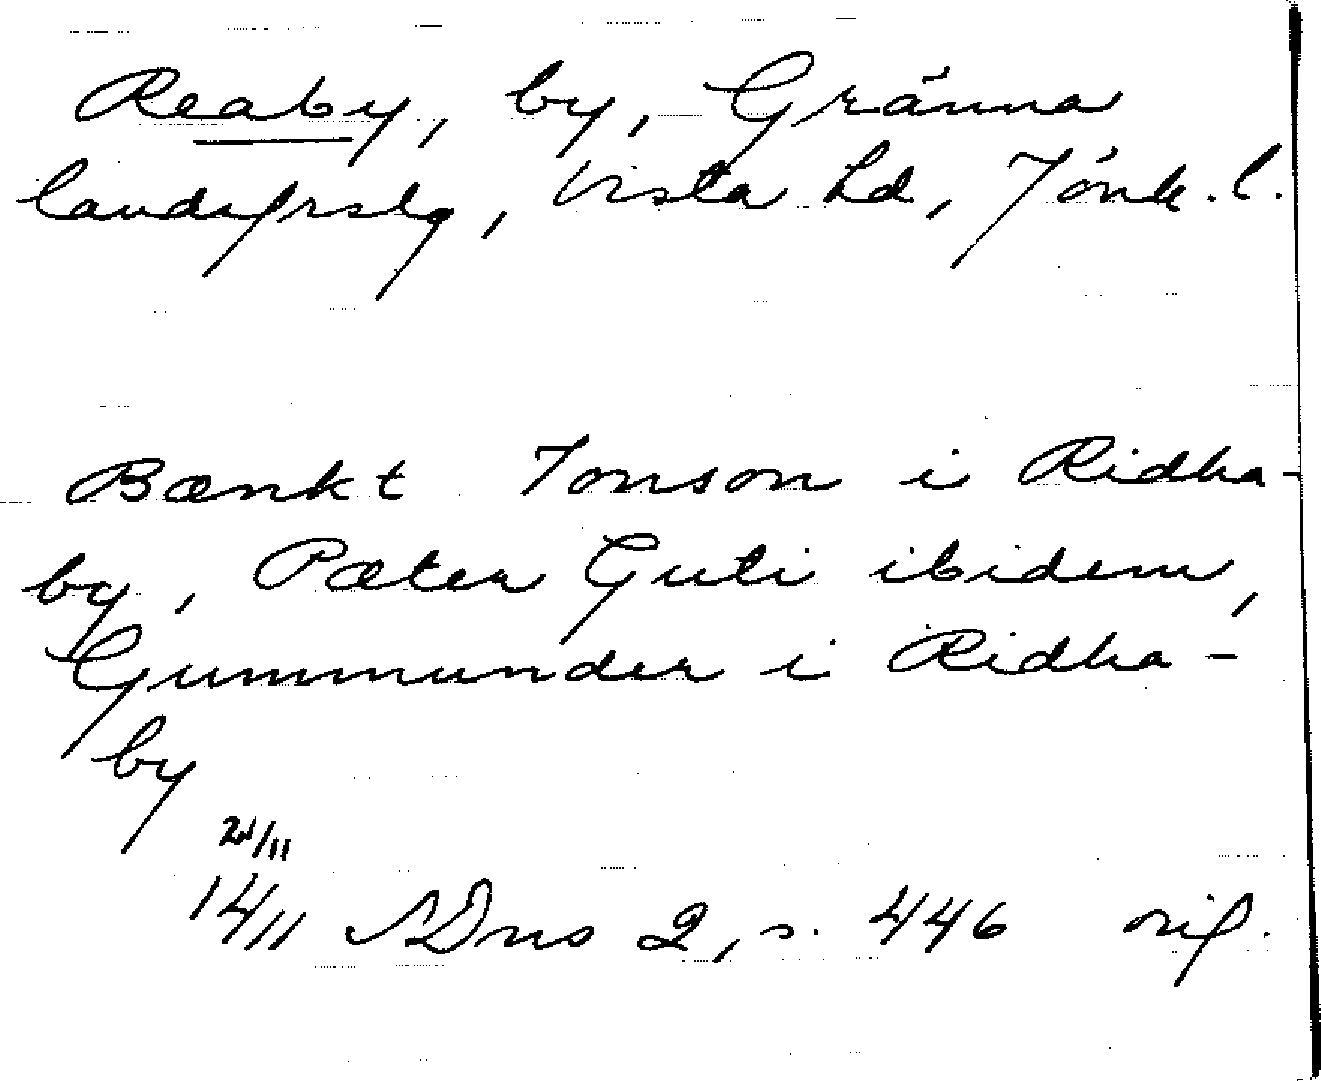 Reaby, by, Gränna
landsfrslg, Vista hd, Jönk. l.
Bænkt Jonson i Ridha-
by, Pæter Guti ibidem,
Gummunder i Ridha-
by
21/11
14/11 SDns 2, s. 446 orig.